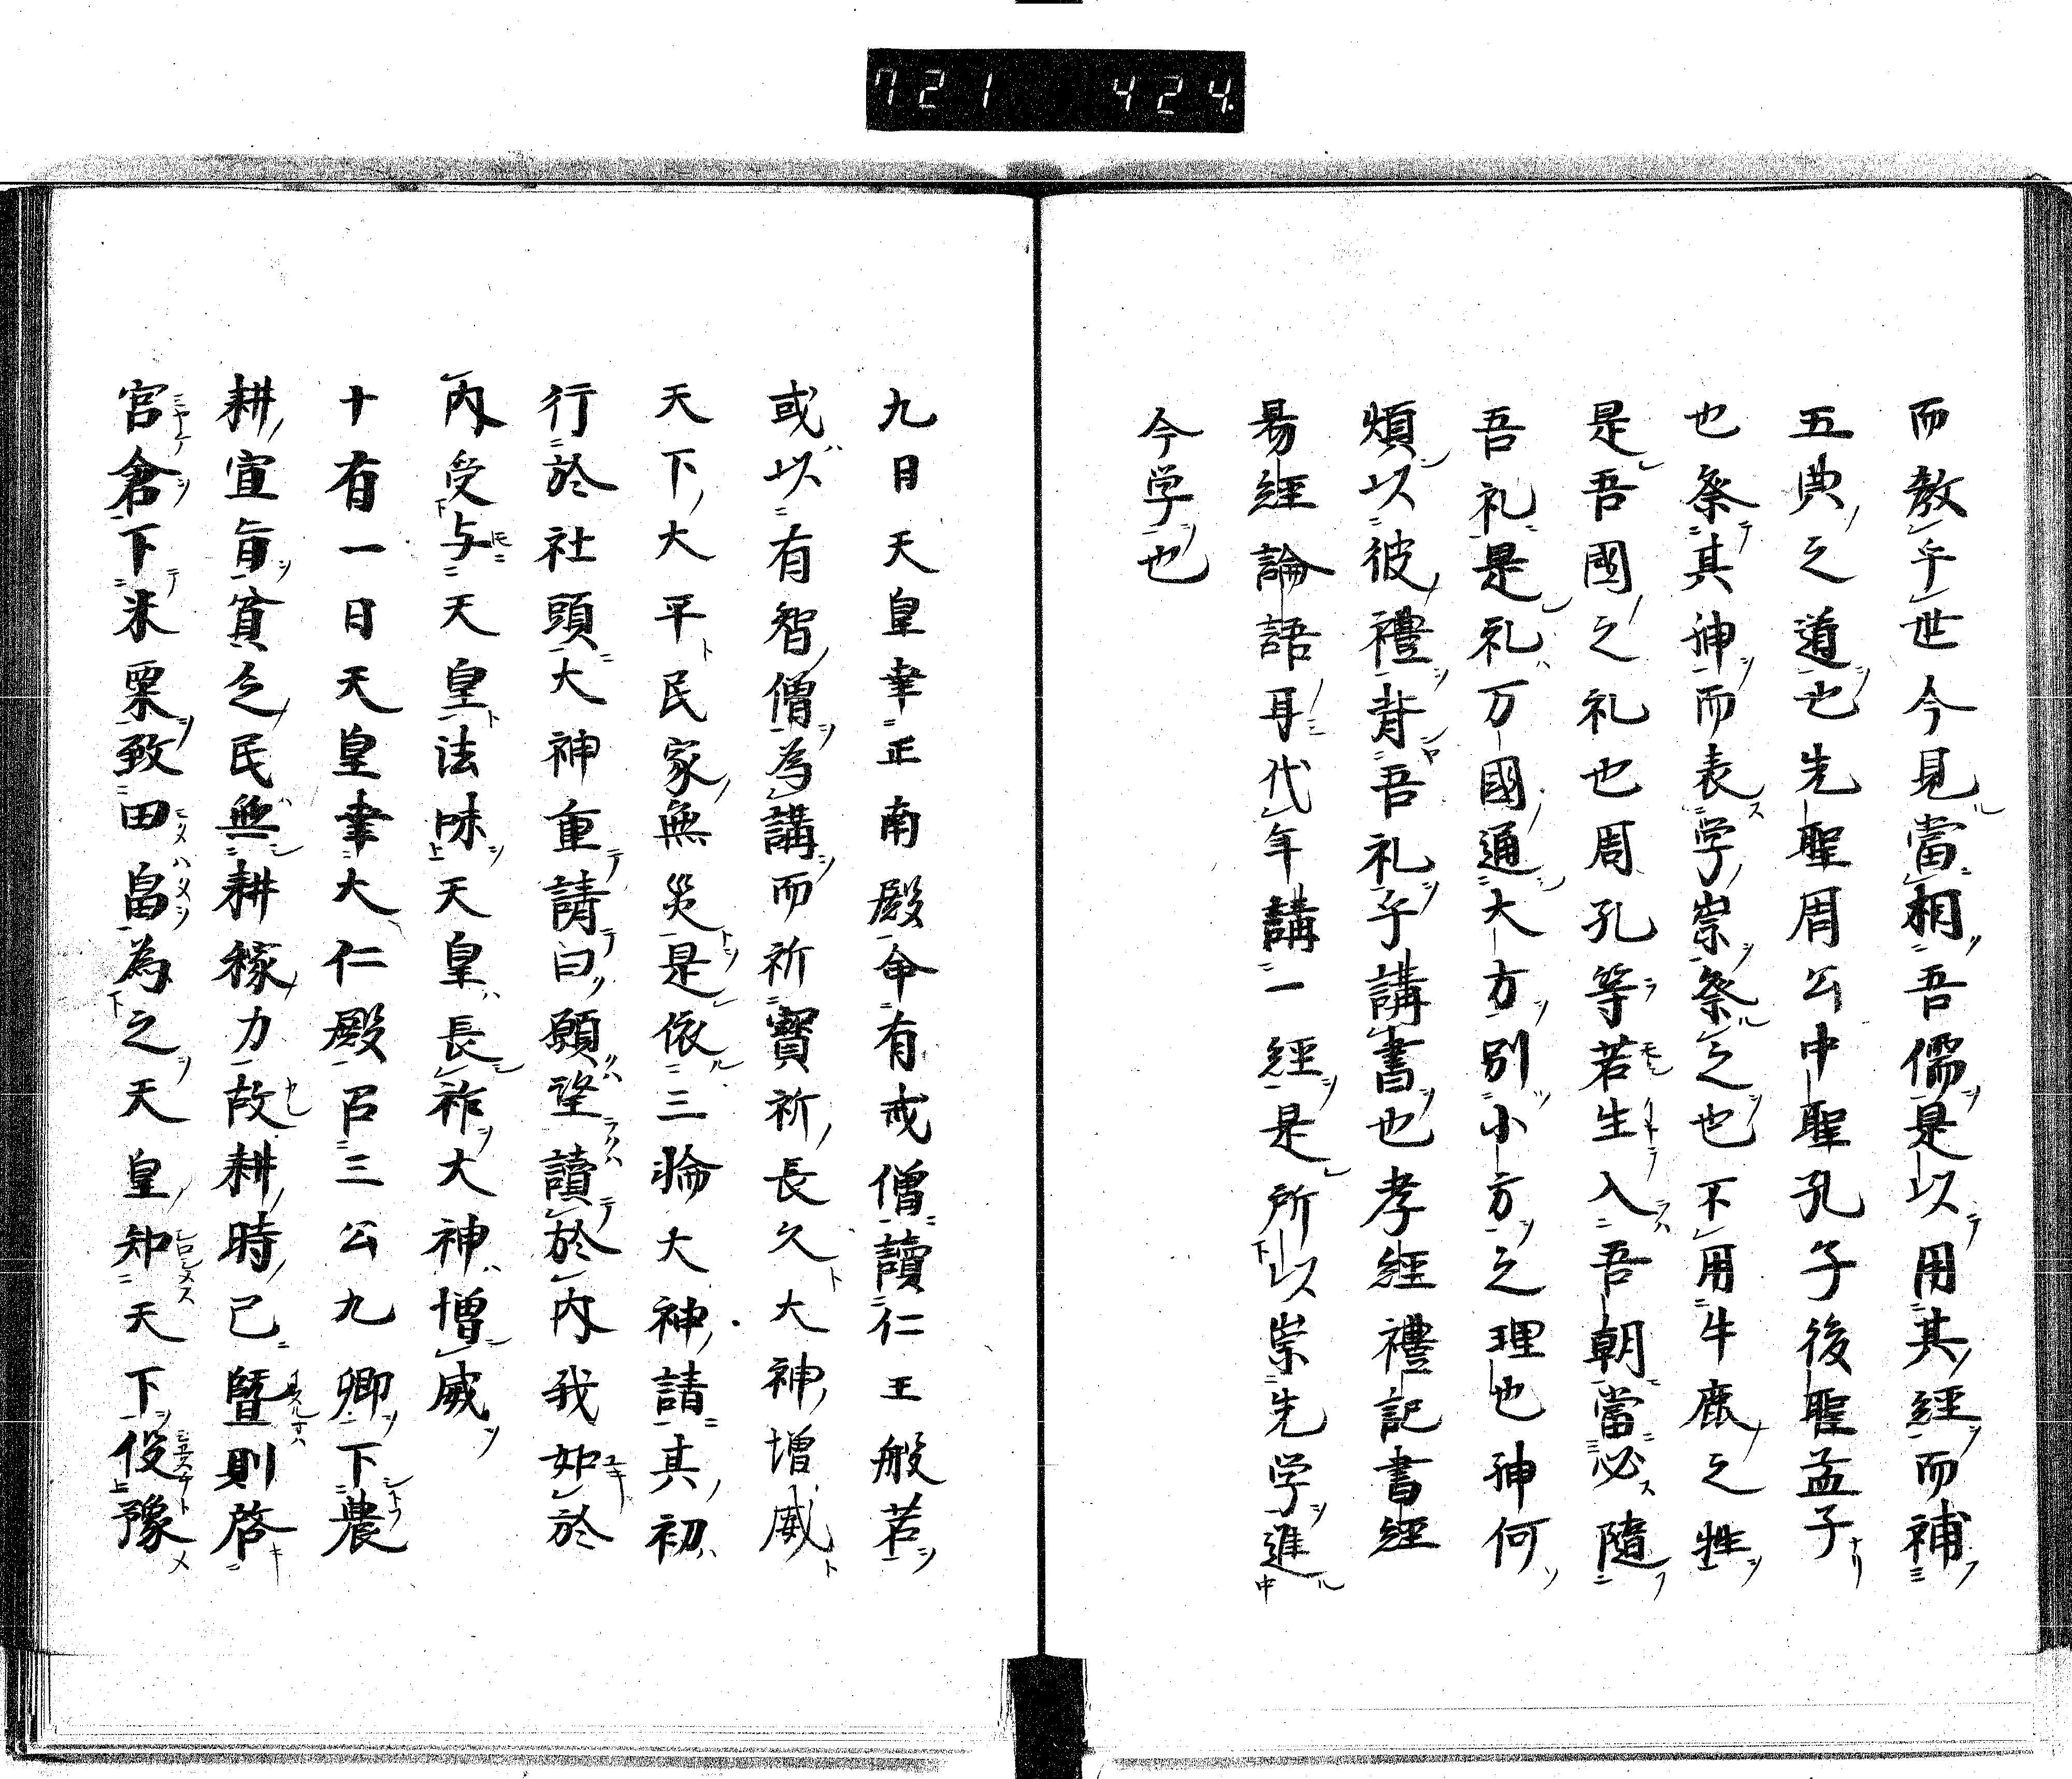 721 424
而教乎世今見當相吾儒是以用其經而補
五典之道也先聖周公中聖孔子後聖孟子
也祭其神而表学崇祭之也不用牛鹿之牲
是吾國之礼也周孔等若生入吾朝當必隨
吾礼是礼万國通大方別小方之理也神何
煩以彼禮背吾礼予講書也孝經禮記書經
易經論語耳代年講一經是所以崇先学進
今学也
九日天皇幸正南殿命有戒僧讀仁王般若
或以有智僧為講而祈寳祈長久大神增威
天下大平民家無災是依三輪大神請其初
行於社頭大神重請曰願望讀於内我如於
内受与天皇法味天皇長祚大神增威
十有一日天皇幸大仁殿召三公九卿下農
耕宣旨貧乏民無耕稼力故耕時已暨則啓
官倉下米粟致田畠為之天皇知天下役豫